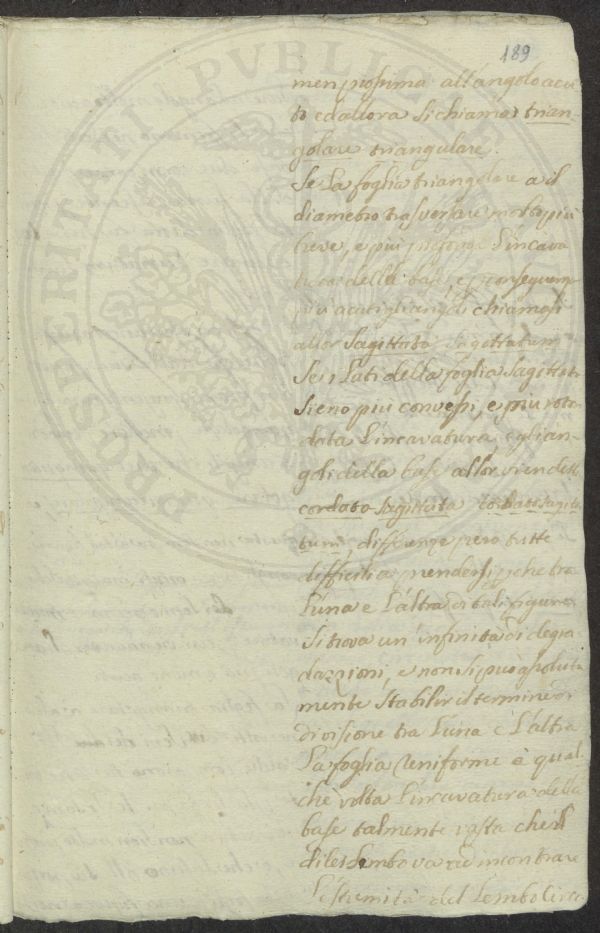 189
men prossima all'angolo acu
to ed allora si chiama trian-
golare triangulare.
Se la foglia triangolare a il
diametro trasversare molto più
breve, e più profonda l'incava
tura della base, e
più acuti gliangoli chiamasi
allor Sagittata Sagittatum
Se i Lati della foglia Sagittata
sieno più convessi, e più roton
data l'incavatura, e glian-
goli della base allor vien detta
cordato-Sagittata cordato sagitta
tum, differenze però tutte
difficili a prendersi, che tra
l'una e l'altra di tali figure
si trova un' infinità di degra
dazzioni, e non si può assoluta
mente stabilir il termine di
divisione tra l'una e l'altra
La foglia Reniforme à qual
che volta l'incavatura della
base talmente vasta che il
di lei Lembo va ad incontrare
l'estremità del Lembo
PROSPERITATI PUBLICAE